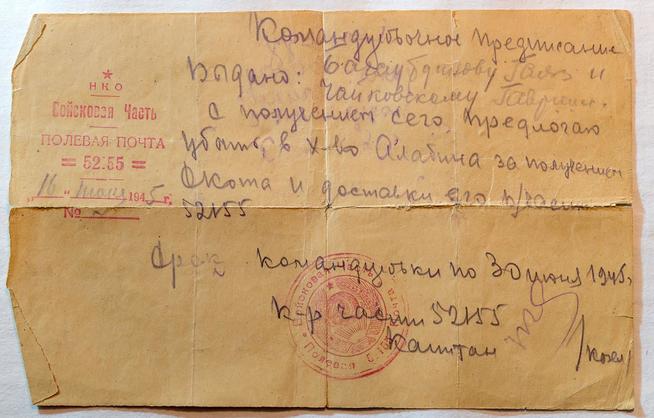 НКО
Войсковая Часть
ПОЛЕВАЯ ПОЧТА
= 52.55 =
"16" июня 1945 г.
№
Командировочное предписание
Выдано: Гаяз и
Чайковскому
С получением сего предлогаю
убыть в х-во Алабина за получением
Скота и доставки его
52155
Срок командировки по 30 июня 1945г
К-р части 52155
Капитан